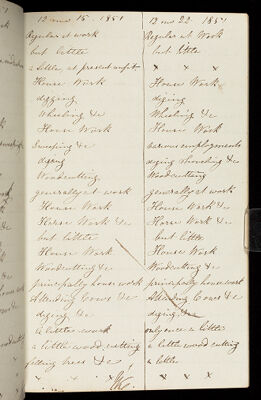 12 mo 15 - 1851
Regular at work
but little
a little, at present unfit
House Work
digging
Wheeling &c
House Work
Sweeping &c
digging
Woodcutting
generally at work
House Work
House Work &c
but little
House Work
Woodcutting &c
principally house work
Attending Cows &c
digging &c
a little work
a little wood cutting
felling trees &c
12 mo 22 - 1851
Regular at Work
but little
x x x
House Work
digging
Wheeling &c
House Work
various employments
digging &c
Woodcutting
generally at work
House Work
House Work &c
but little
House Work
Woodcutting &c
principally house work
Attending Cows &c
digging &c
only once a little
a little wood cutting
a little